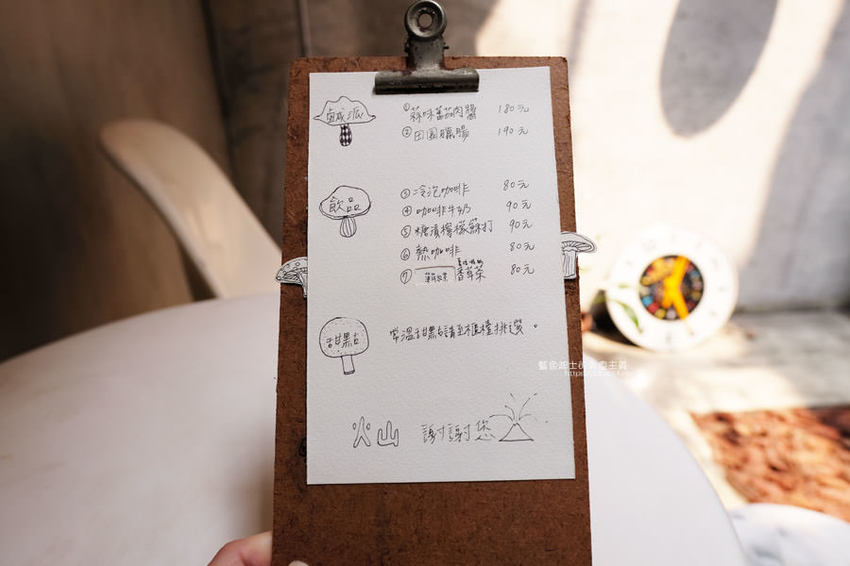 鹹派
① 蒜味蕃茄肉醬 180元
② 田園臘腸 190元
飲品
③ 冷泡咖啡 80元
④ 咖啡牛奶 90元
⑤ 糖漬檸檬蘇打 90元
⑥ 熱咖啡 80元
⑦ 香草茶 80元
甜點
常溫甜點請至櫃檯挑選。
火山 謝謝您